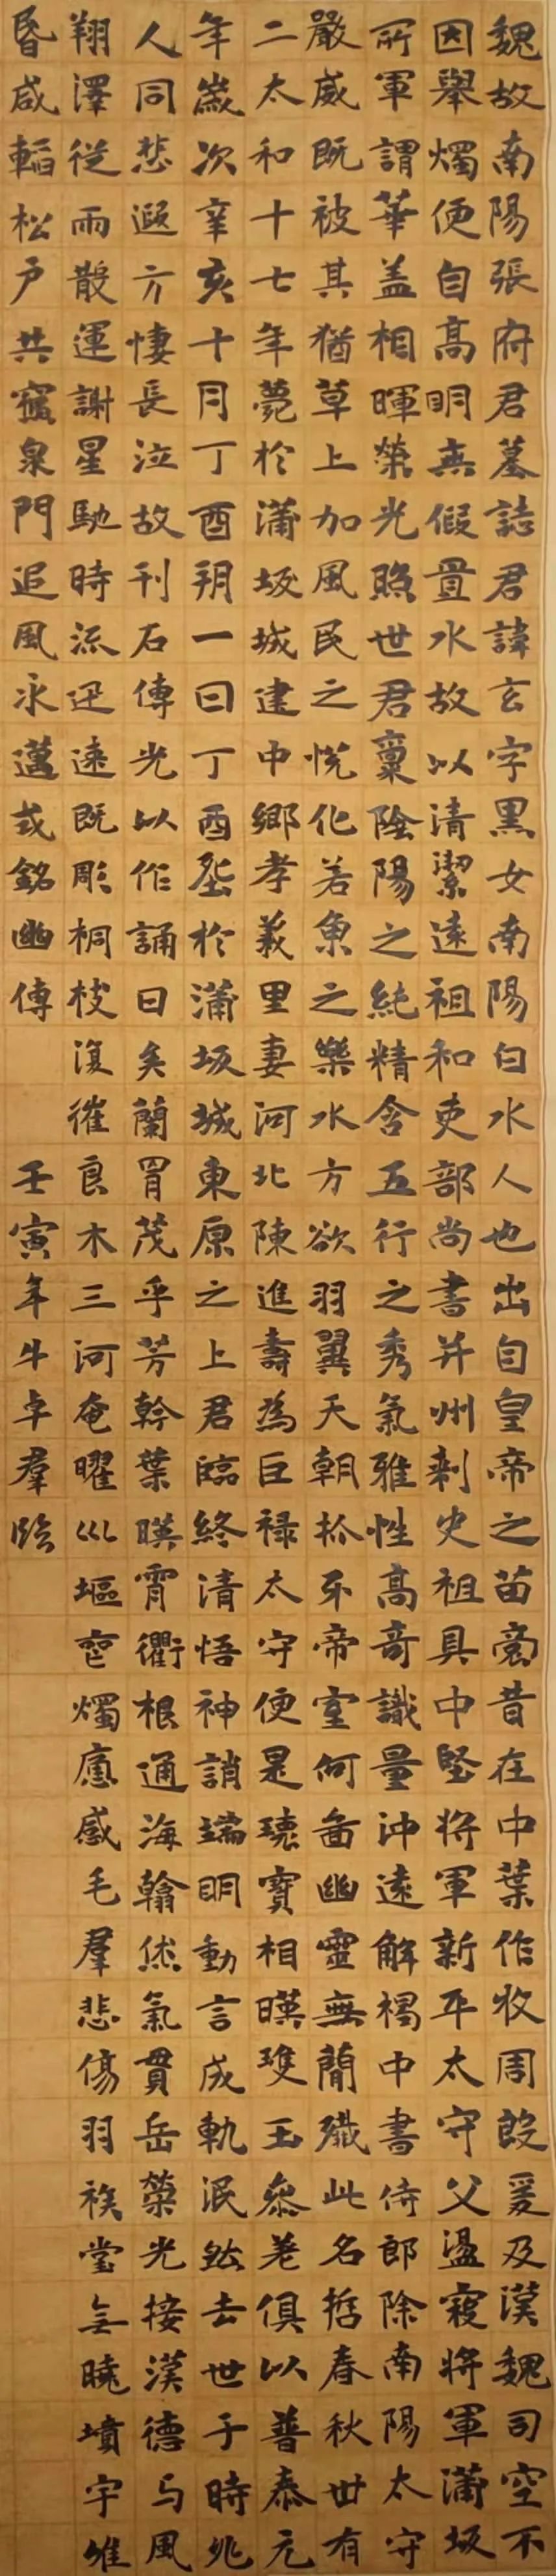 魏故南陽張府君墓誌君諱玄字黑女南陽白水人也出自皇帝之苗裔昔在中葉作牧周殷爰及漢魏司空不
因舉燭便自高明無假置水故以清潔遠祖和吏部尚書并州刺史祖具中堅將軍新平太守父盪寇將軍蒲坂
所軍謂華盖相暉榮光照世君稟陰陽之純精含五行之秀氣雅性高奇識量沖遠解褐中書侍郎除南陽太守
嚴威既被其猶草上加風民之悅化若魚之樂水方欲羽翼天朝抓牙帝室何圖幽靈無簡殲此名哲春秋卅有
二太和十七年薨於蒲坂城建中鄉孝義里妻河北陳進壽為巨祿太守便是瓌寶相暎雙玉參差俱以普泰元
年歲次辛亥十月丁酉朔一日丁酉塟於蒲坂城東原之上君臨終清悟神誚端明動言成軌泯然去世于時兆
人同悲遐方悽長泣故刊石傳光以作誦曰矣蘭胄茂乎芳幹葉暎霄衢根通海翰烋氣貫岳榮光接漢德与風
翔澤從雨散運謝星馳時流迅速既彫桐枝復摧良木三河奄曜巛塸燭感毛羣悲傷羽族堂無曉墳宇唯
昏咸韜松戶共寑泉門追風永邁式銘幽傳 壬寅年牛卓羣臨